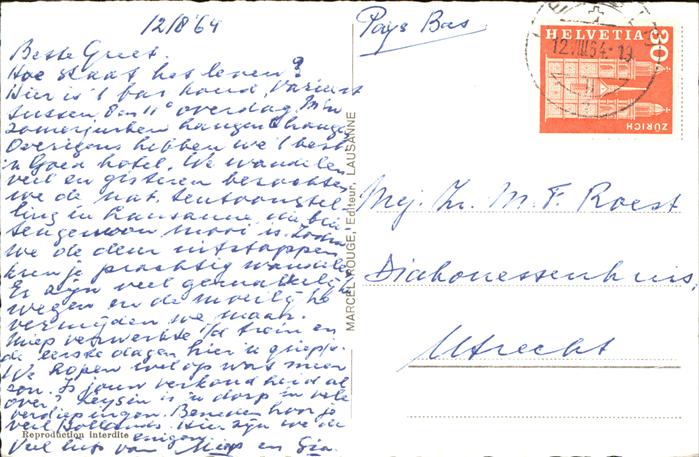 12/8 '64
Beste Greet,
Hoe staat het leven?
Hier is 't bar koud, varieert
tussen 8 en 11° overdag. M'n
zomerjurken hangen
Overigens hebben we 't best
'n Goed hotel. We wandelen
veel en gisteren bezochten
we de nat. tentoonstel-
ling in Lausanne, die
mooi is. Zodra
we de deur uitstappen
kun je prachtig wandelen
Er zijn veel gemakkelijke
wegen en de moeilijke
vermijden we maar.
Miep verwerkte i/d trein en
de eerste dagen hier 'n griepje.
We hopen wel op wat meer
zon. Is jouw verkoudheid al
over? Leysin is 'n dorp in vele
verdiepingen. Beneden hoor je
veel Hollands. Hier zijn we de
enigen.
Veel liefs van Miep en
Reproduction interdite
MARCEL ROUGE, Editeur, LAUSANNE
Pays Bas
HELVETIA 30
ZÜRICH
12.VIII.64-19
Mej. Zr. M. F. Roest
Diakonessenhuis,
Utrecht